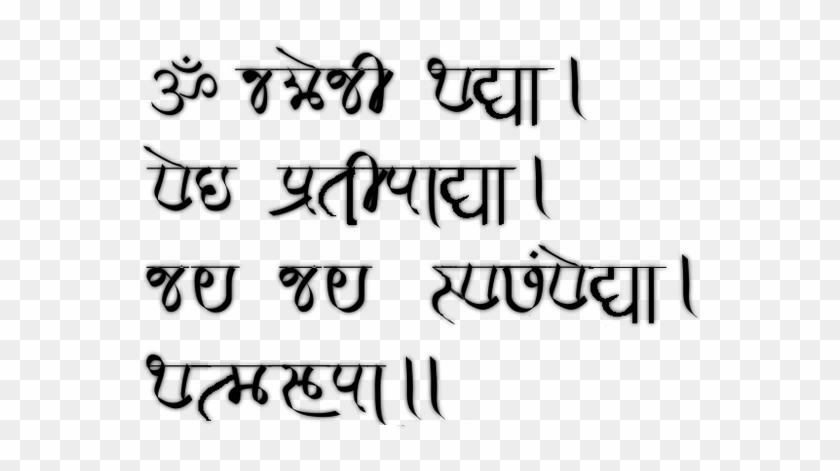 ॐ नमोजी आद्या।
वेद प्रतीपाद्या।
जय जय स्वसंवेद्या।
आत्मरूपा॥